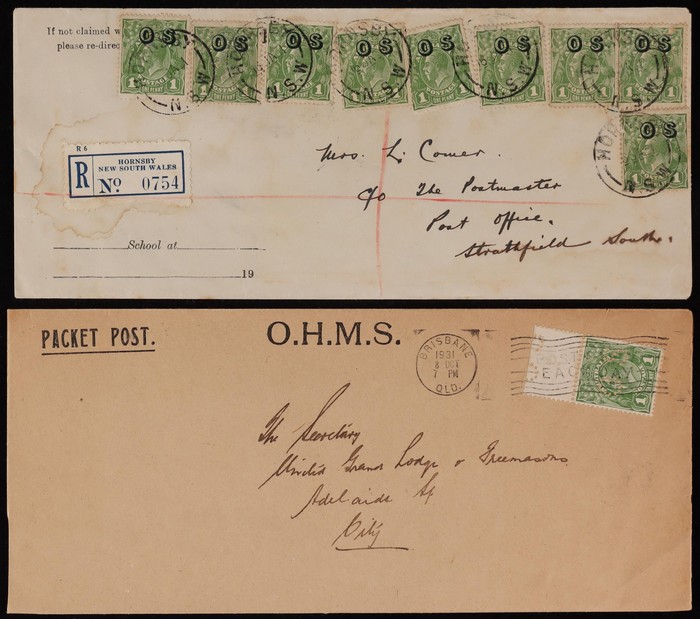 If not claimed w
please re-direc
OS OS OS OS OS OS OS OS
POSTAGE
1 ONE PENNY 1
OS
HORNSBY N.S.W
R6
R
HORNSBY
NEW SOUTH WALES
No 0754
Mrs. L. Comer.
c/o The Postmaster
Post Office.
Strathfield South.
School at
19
PACKET POST.
O.H.M.S.
BRISBANE
1931
8 DEC
7 PM
QLD.
POST
EA
AY
1
The Secretary
United Grand Lodge o Freemasons
Adelaide St
City